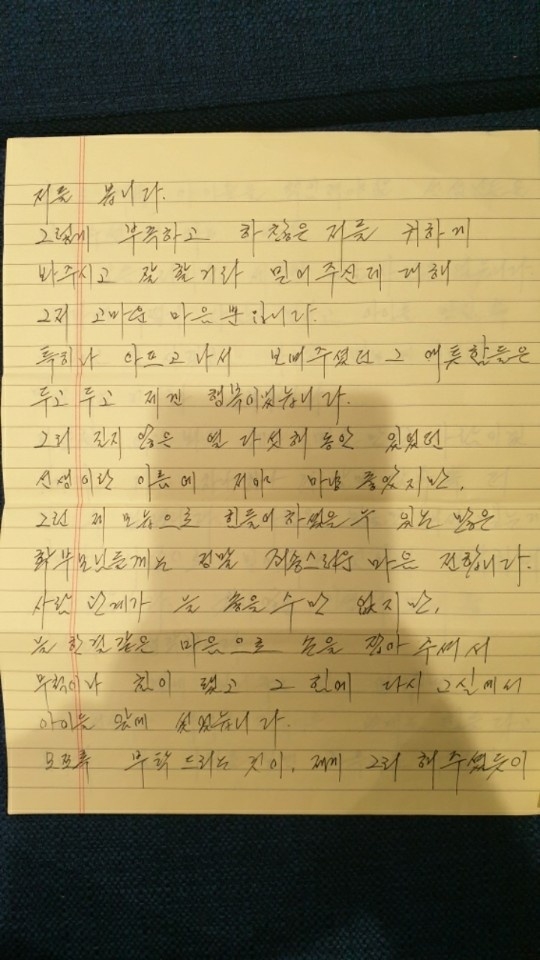 저를 봅니다.
그렇게 부족하고 하찮은 저를 귀하게
봐주시고 잘 할거라 믿어주신데 대해
그저 고마운 마음뿐입니다.
특히나 아프고 나서 보여주셨던 그 애틋함들은
두고 두고 제겐 행복이었습니다.
그리 길지 않은 열 다섯해 동안 있었던
선생이란 이름에 저야 마냥 좋았지만,
그런 제 모습으로 힘들어 하셨을 수 있는 많은
학부모님들께는 정말 죄송스러운 마음 전합니다.
사람 관계가 늘 좋을수만 없지만,
늘 한결같은 마음으로 손을 잡아 주셔서
무척이나 힘이 됐고 그 힘에 다시 교실에서
아이들 앞에 섰었습니다.
모쪼록 부탁드리는 것이, 제게 그리 해 주셨듯이